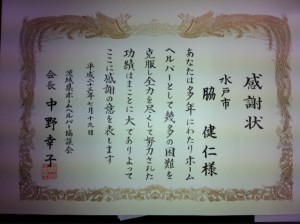 感謝状
水戸市
脇 健仁様
あなたは多年にわたりホーム
ヘルパーとして幾多の困難を
克服し全力を尽くして努力された
功績はまことに大でありよって
ここに感謝の意を表します
平成二十三年七月十九日
茨城県ホームヘルパー協議会
会長 中野幸子